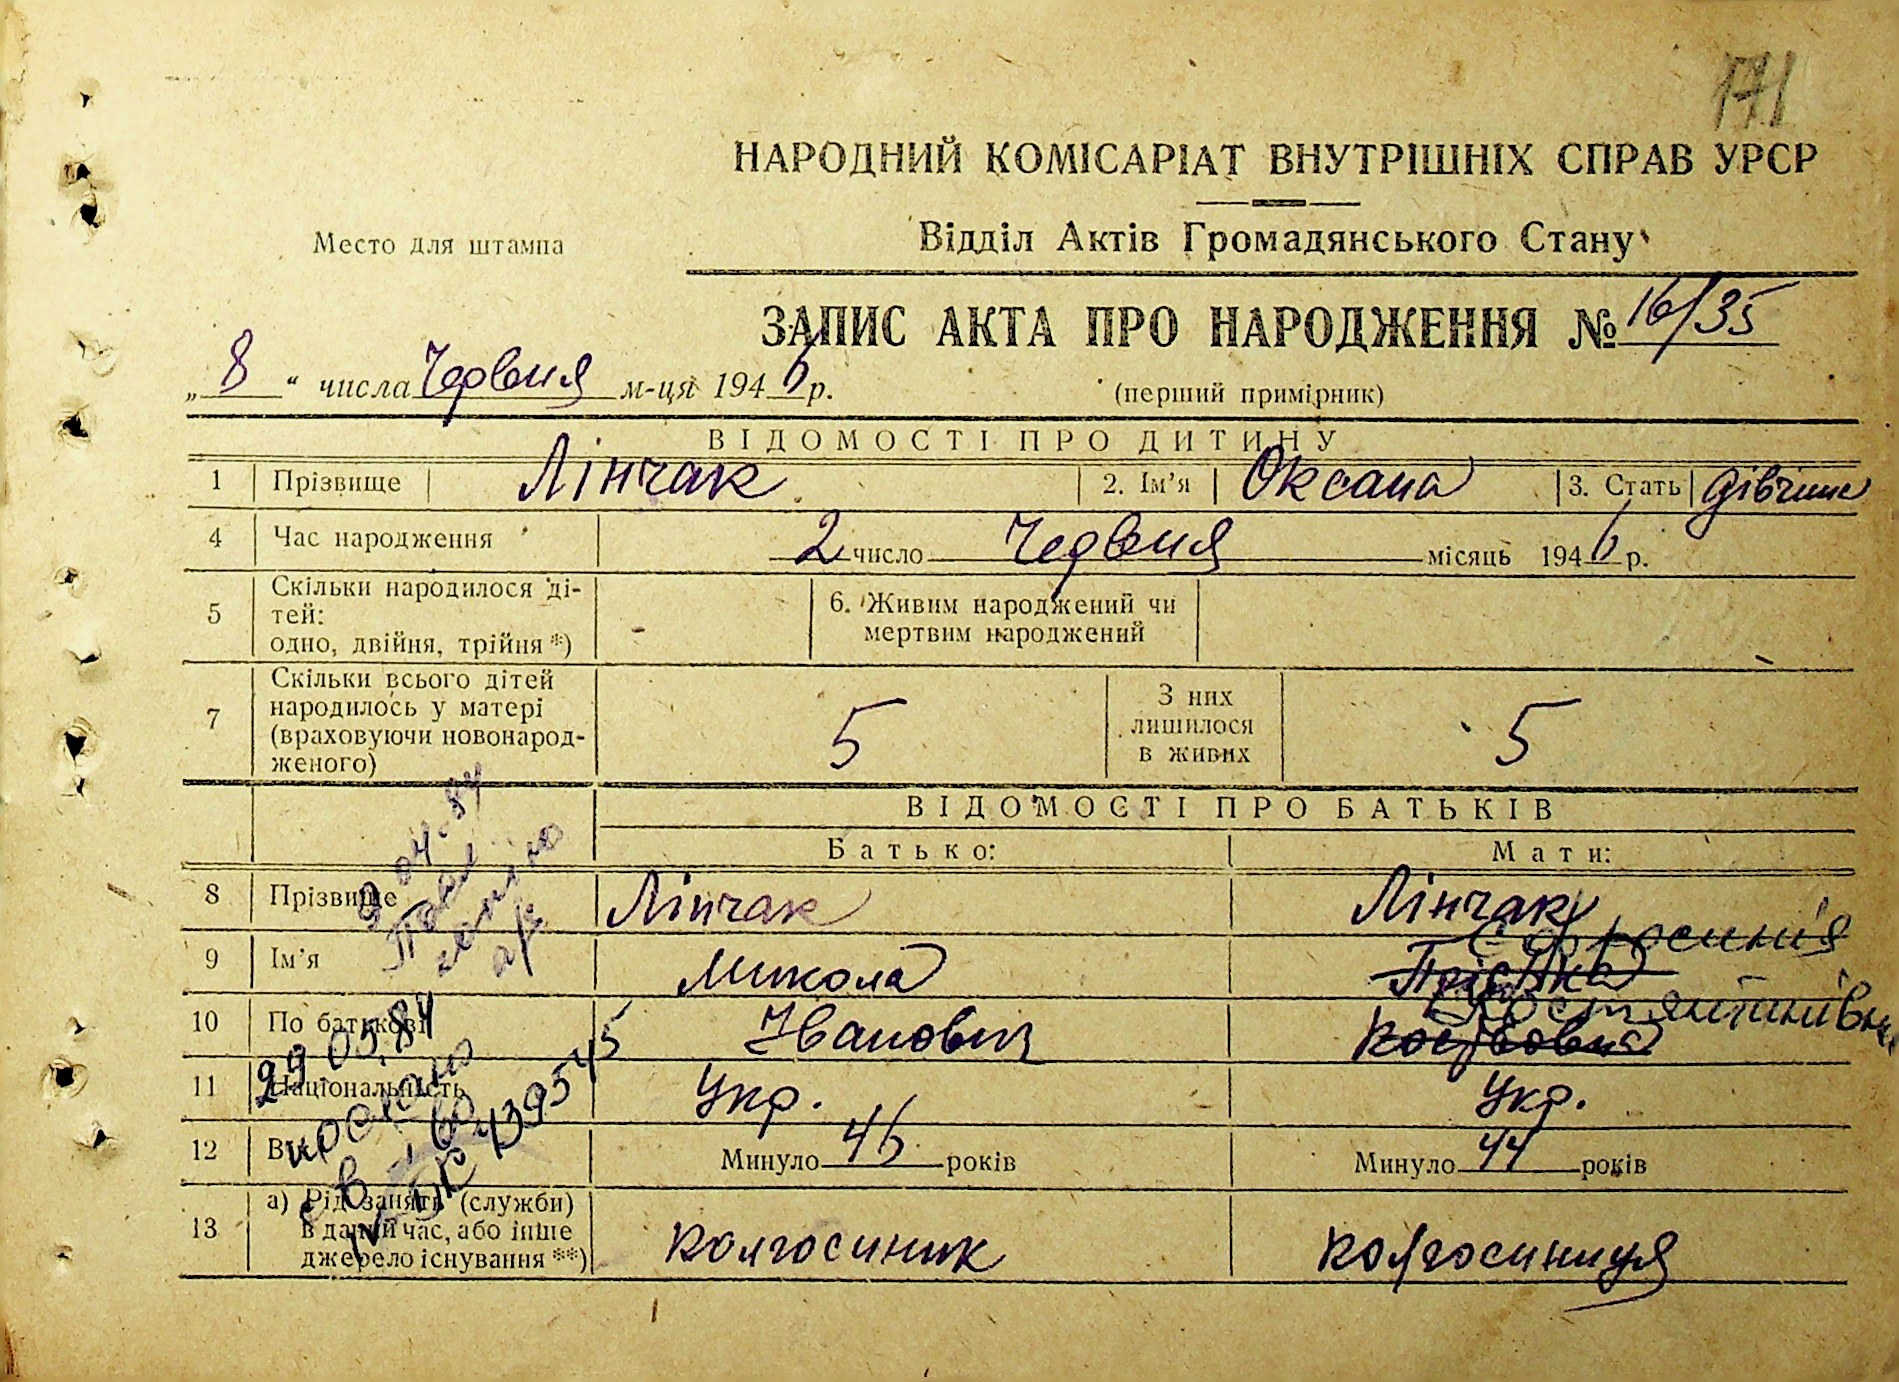 171
НАРОДНИЙ КОМІСАРІАТ ВНУТРІШНІХ СПРАВ УРСР
Место для штампа
Відділ Актів Громадянського Стану
ЗАПИС АКТА ПРО НАРОДЖЕННЯ № 16/35
„ 8 “ числа Червня м-ця 194 6 р.
(перший примірник)
ВІДОМОСТІ ПРО ДИТИНУ
1 Прізвище Лінчак 2. Ім'я Оксана 3. Стать дівчина
4 Час народження 2 число Червня місяць 194 6 р.
5 Скільки народилося ді-
тей:
одно, двійня, трійня *) -
6. Живим народжений чи
мертвим народжений
7 Скільки всього дітей
народилось у матері
(враховуючи новонарод-
женого) 5
З них
лишилося
в живих 5
ВІДОМОСТІ ПРО БАТЬКІВ
Батько: Мати:
8 Прізвище Лінчак Лінчак
Єфросинія
9 Ім'я Микола
Костянтинівна
10 По батькові Іванович
11 Національність Укр. Укр.
12 Вік Минуло 46 років Минуло 44 років
13 а) Рід занять (служби)
в даний час, або інше
джерело існування **) колгоспник колгоспниця
9 04.84
29 05.84
439545